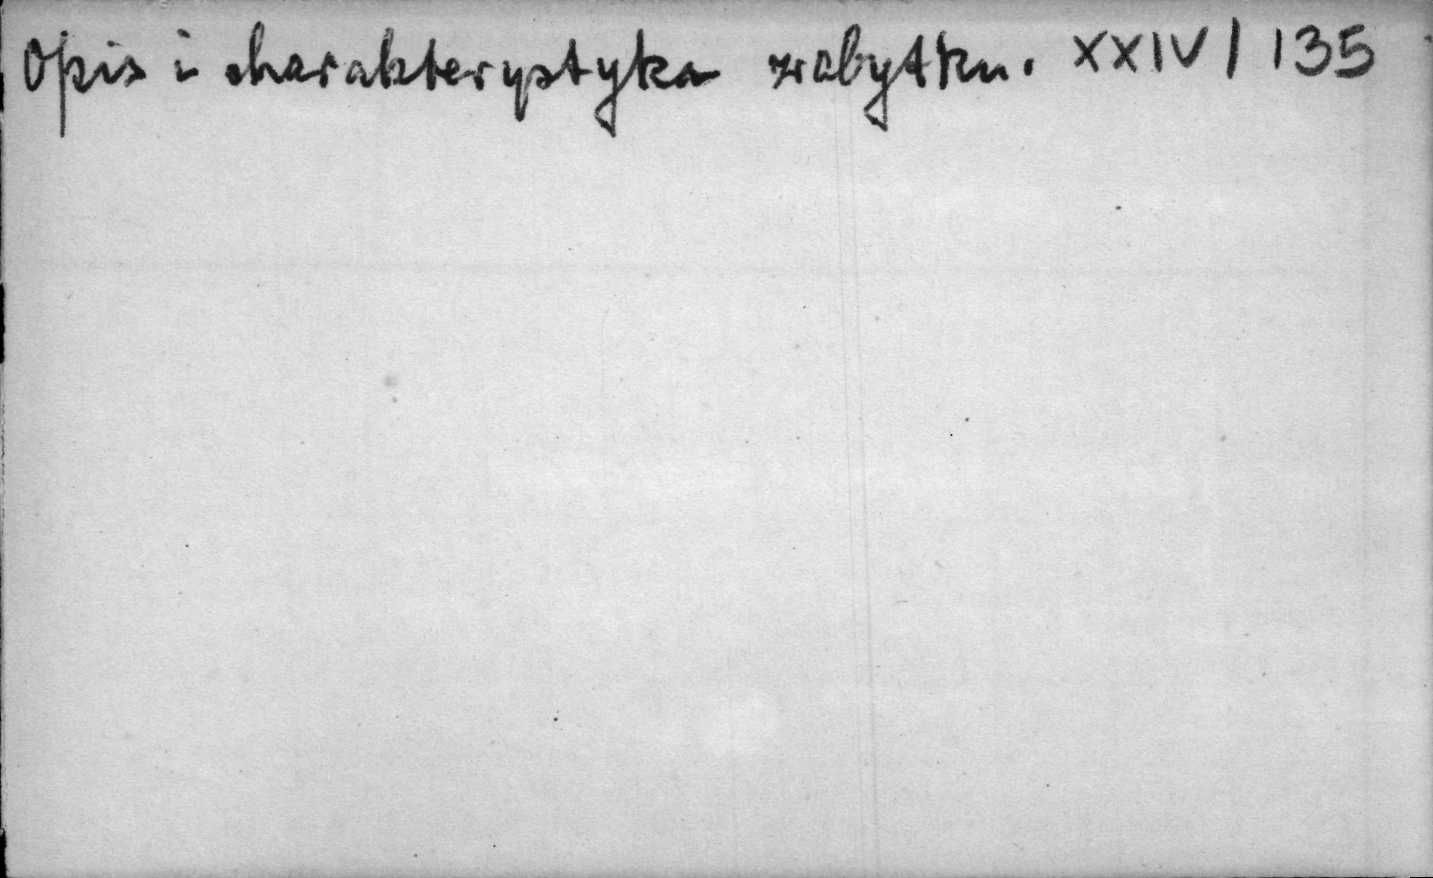 Opis i charakterystyka zabytku. XXIV/135